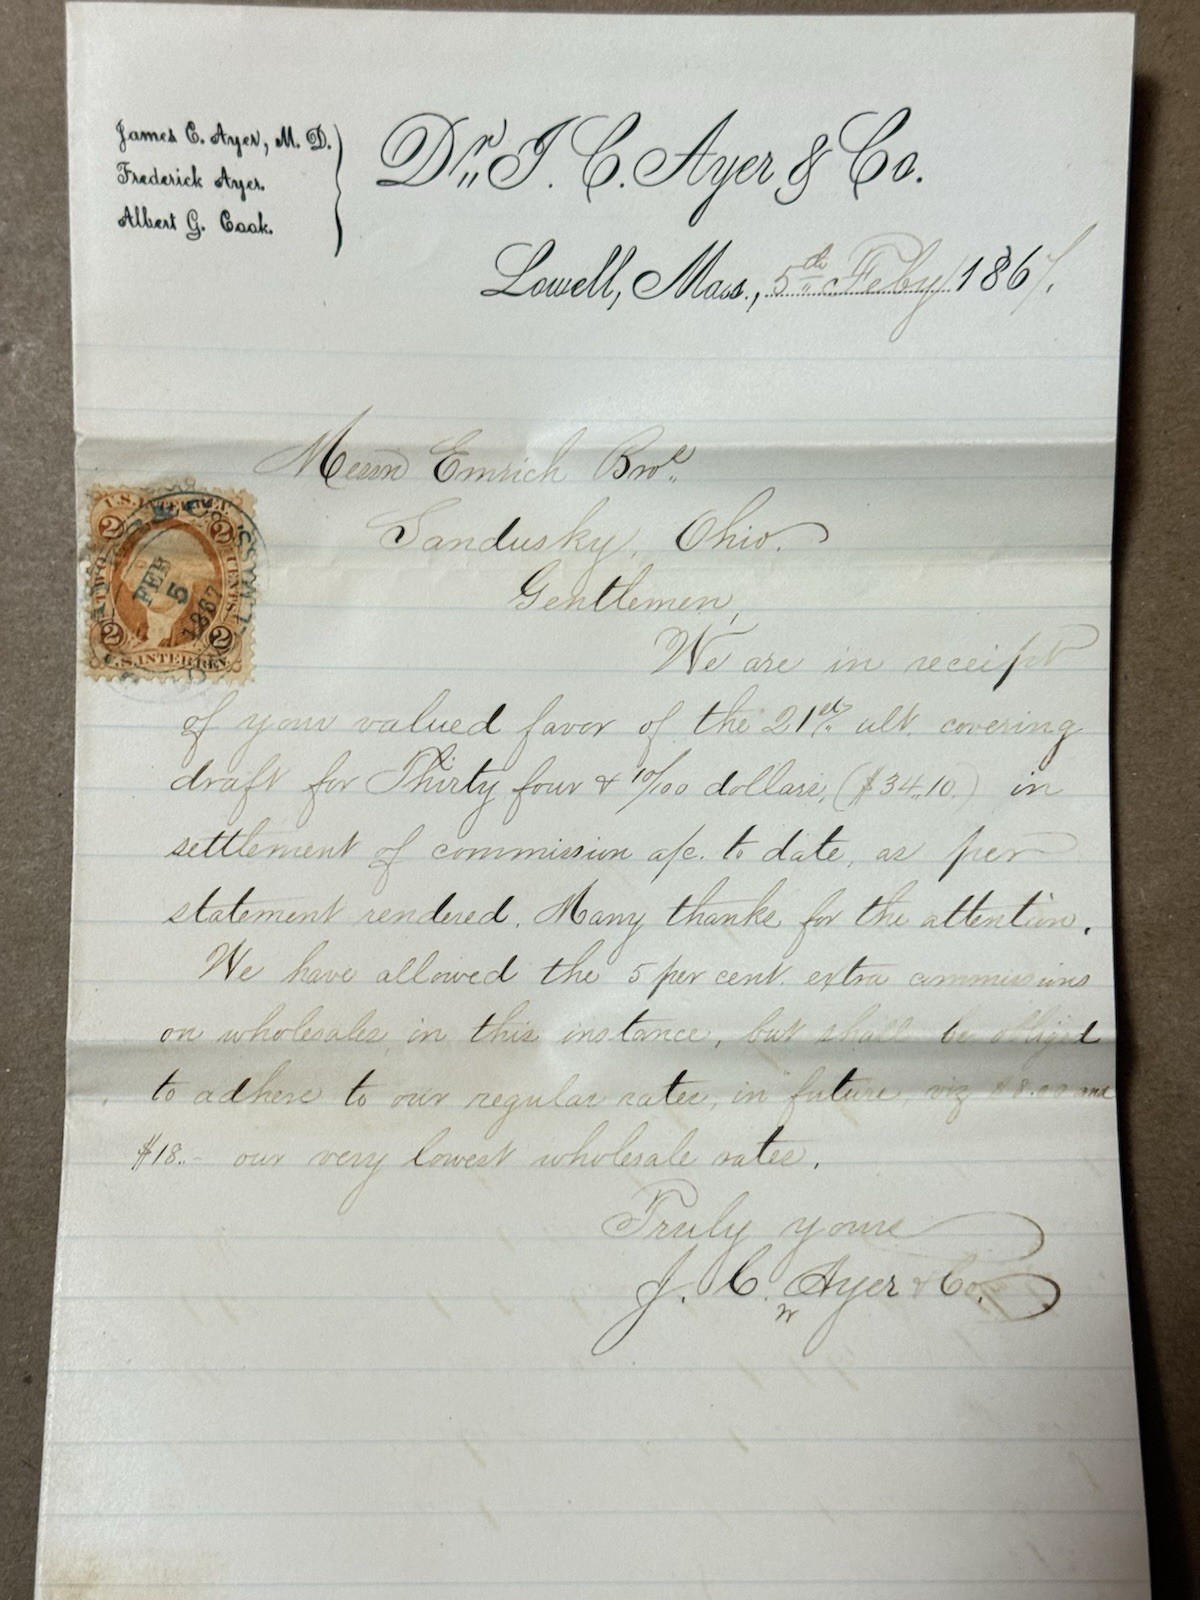 James C. Ayer, M. D.
Frederick Ayer.
Albert G. Cook.
Dr. J. C. Ayer & Co.
Lowell, Mass., 5th Feby 1867.
Messrs Emrich Bros.
Sandusky, Ohio.
Gentlemen,
We are in receipt
of your valued favor of the 21st ult. covering
draft for Thirty four & 10/100 dollars, ($34.10.) in
settlement of commission a/c. to date, as per
statement rendered. Many thanks for the attention.
We have allowed the 5 per cent. extra commissions
on wholesales, in this instance, but shall be obliged
to adhere to our regular rates, in future, viz $8.00 and
$18.- our very lowest wholesale rates.
Truly yours
J. C. Ayer & Co.
W
U.S. INTER. REV.
2 2
TWO CENTS
FEB
5
1867
2 2
U.S. INTER. REV.